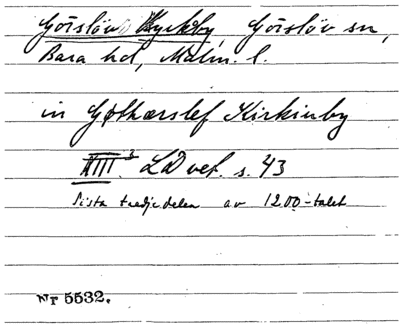 Görslövs Kyrkby, Görslöv sn,
Bara hd, Malm. l.
in Gøthærslef Kirkiuby
XIII 3. LDvet. s. 43
Sista tredjedelen av 1200-talet
Nr 5532.